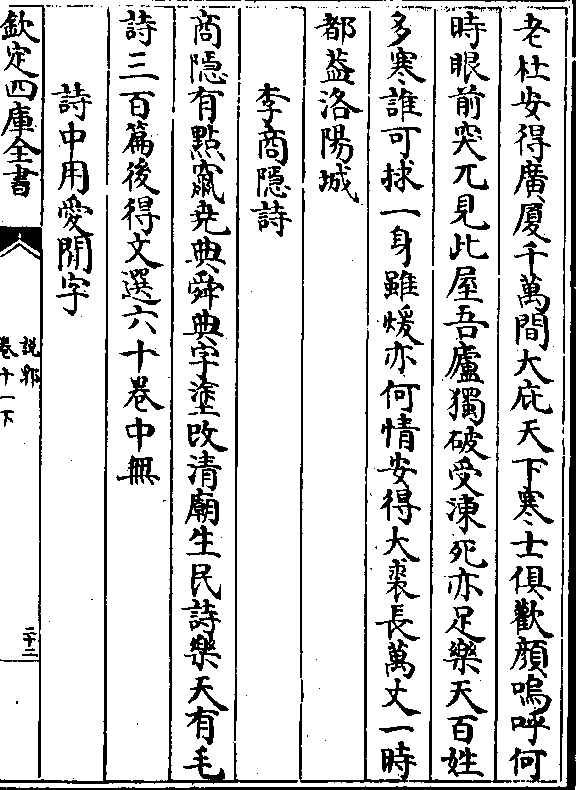 老杜安得廣厦千萬間大庇天下寒士俱歡顔嗚呼何
時眼前突兀見此屋吾廬獨破受凍死亦足樂天百姓
多寒誰可捄一身雖煖亦何情安得大裘長萬丈一時
都葢洛陽城
李商隱詩
商隱有點竄堯典舜典字塗改清廟生民詩樂天有毛
詩三百篇後得文選六十卷中無
詩中用愛閒字
欽定四庫全書
説郛
卷十一下
二十二